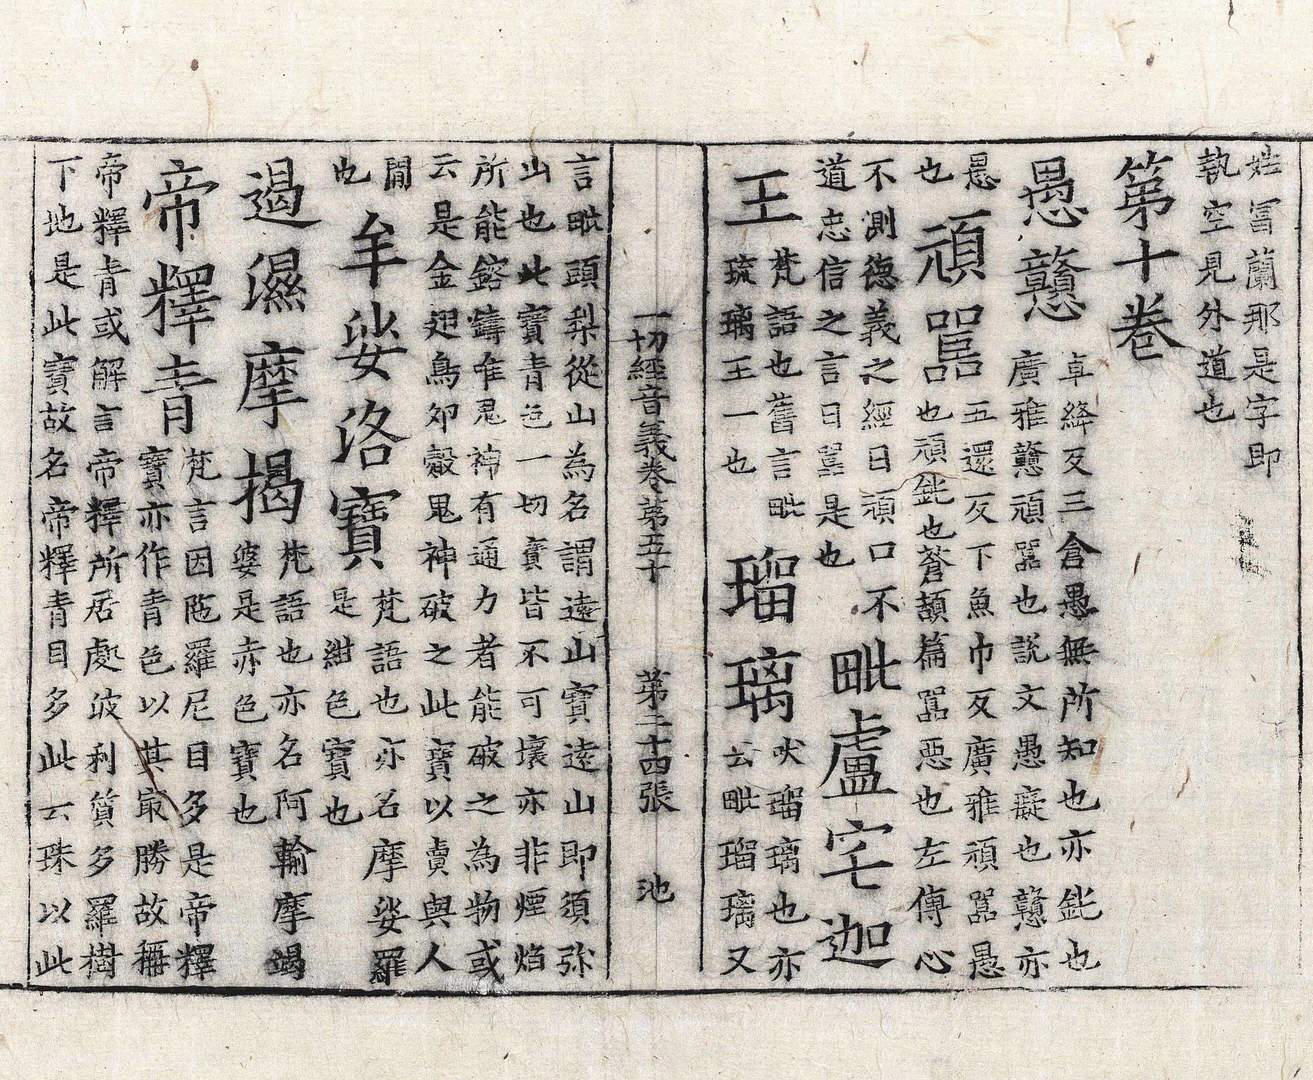 姓冨蘭那是字即
執空見外道也
第十卷
愚戇 卓絳反三倉愚無所知也亦鈍也
廣雅戇頑嚚也說文愚癡也戇亦
愚
也 頑嚚 五還反下魚巾反廣雅頑嚚愚
也頑鈍也蒼頡篇嚚惡也左傳心
不測德義之經曰頑口不
道忠信之言曰嚚是也 毗盧宅迦
王 梵語也舊言毗
琉璃王一也 瑠璃 吠瑠璃也亦
云毗瑠璃又
一切經音義卷第五十 第二十四張 池
言毗頭梨從山為名謂遠山寶遠山即須弥
山也此寶青色一切寶皆不可壞亦非煙焰
所能鎔鑄唯鬼神有通力者能破之為物或
云是金翅鳥卵㲉鬼神破之此寶以賣與人
間
也 牟娑洛寶 梵語也亦名摩娑羅
是紺色寶也
遏濕摩揭 梵語也亦名阿輸摩竭
婆是赤色寶也
帝釋青 梵言因陁羅尼目多是帝釋
寶亦作青色以其㝡勝故稱
帝釋青或解言帝釋所居處波利質多羅樹
下地是此寶故名帝釋青目多此云珠以此